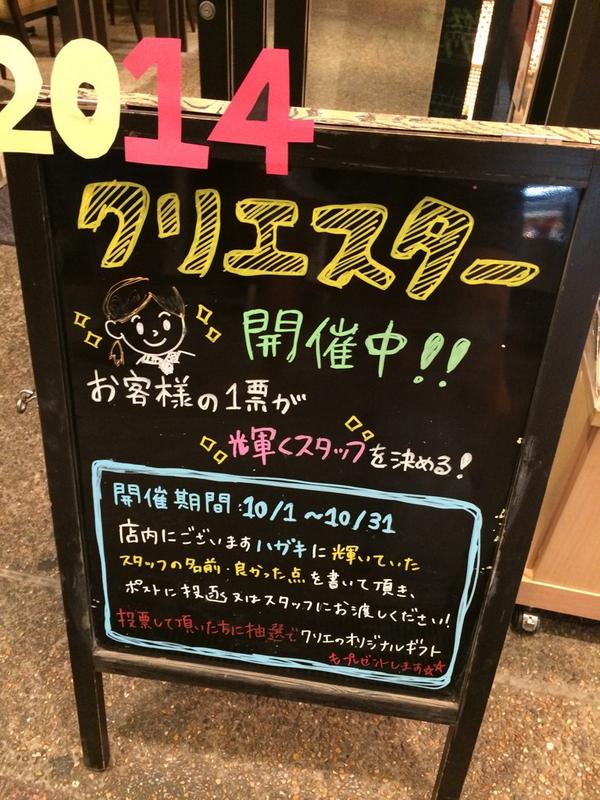 2014
クリエスター
開催中!!
お客様の1票が
輝くスタッフを決める!
開催期間:10/1~10/31
店内にございますハガキに輝いていた
スタッフの名前・良かった点を書いて頂き、
ポストに投函又はスタッフにお渡しください!
投票して頂いた方に抽選でクリエのオリジナルギフト
をプレゼントします☆☆